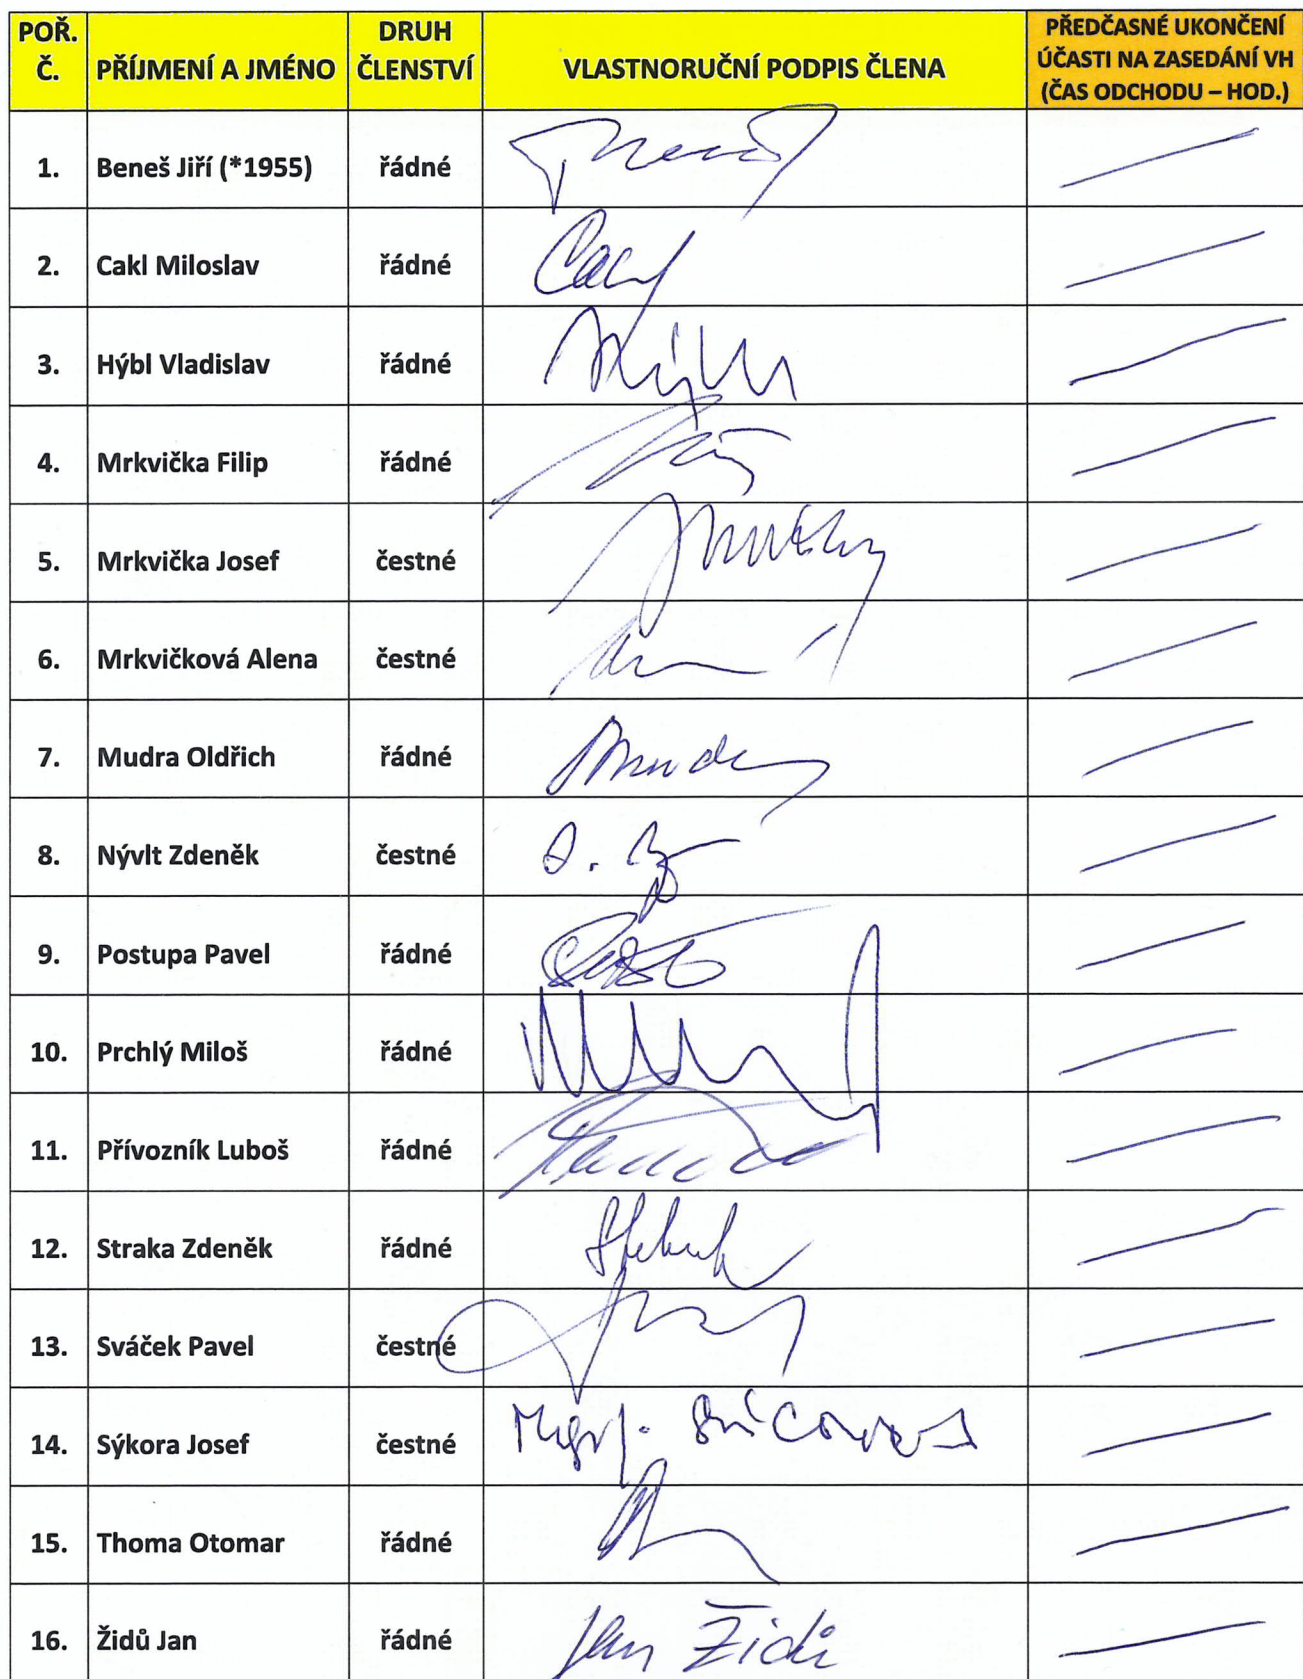 POŘ. Č. PŘÍJMENÍ A JMÉNO DRUH ČLENSTVÍ VLASTNORUČNÍ PODPIS ČLENA PŘEDČASNÉ UKONČENÍ ÚČASTI NA ZASEDÁNÍ VH (ČAS ODCHODU – HOD.)
1. Beneš Jiří (*1955) řádné
2. Cakl Miloslav řádné
3. Hýbl Vladislav řádné
4. Mrkvička Filip řádné
5. Mrkvička Josef čestné
6. Mrkvičková Alena čestné
7. Mudra Oldřich řádné
8. Nývlt Zdeněk čestné
9. Postupa Pavel řádné
10. Prchlý Miloš řádné
11. Přívozník Luboš řádné
12. Straka Zdeněk řádné
13. Sváček Pavel čestné
14. Sýkora Josef čestné
15. Thoma Otomar řádné
16. Židů Jan řádné Jan Židů